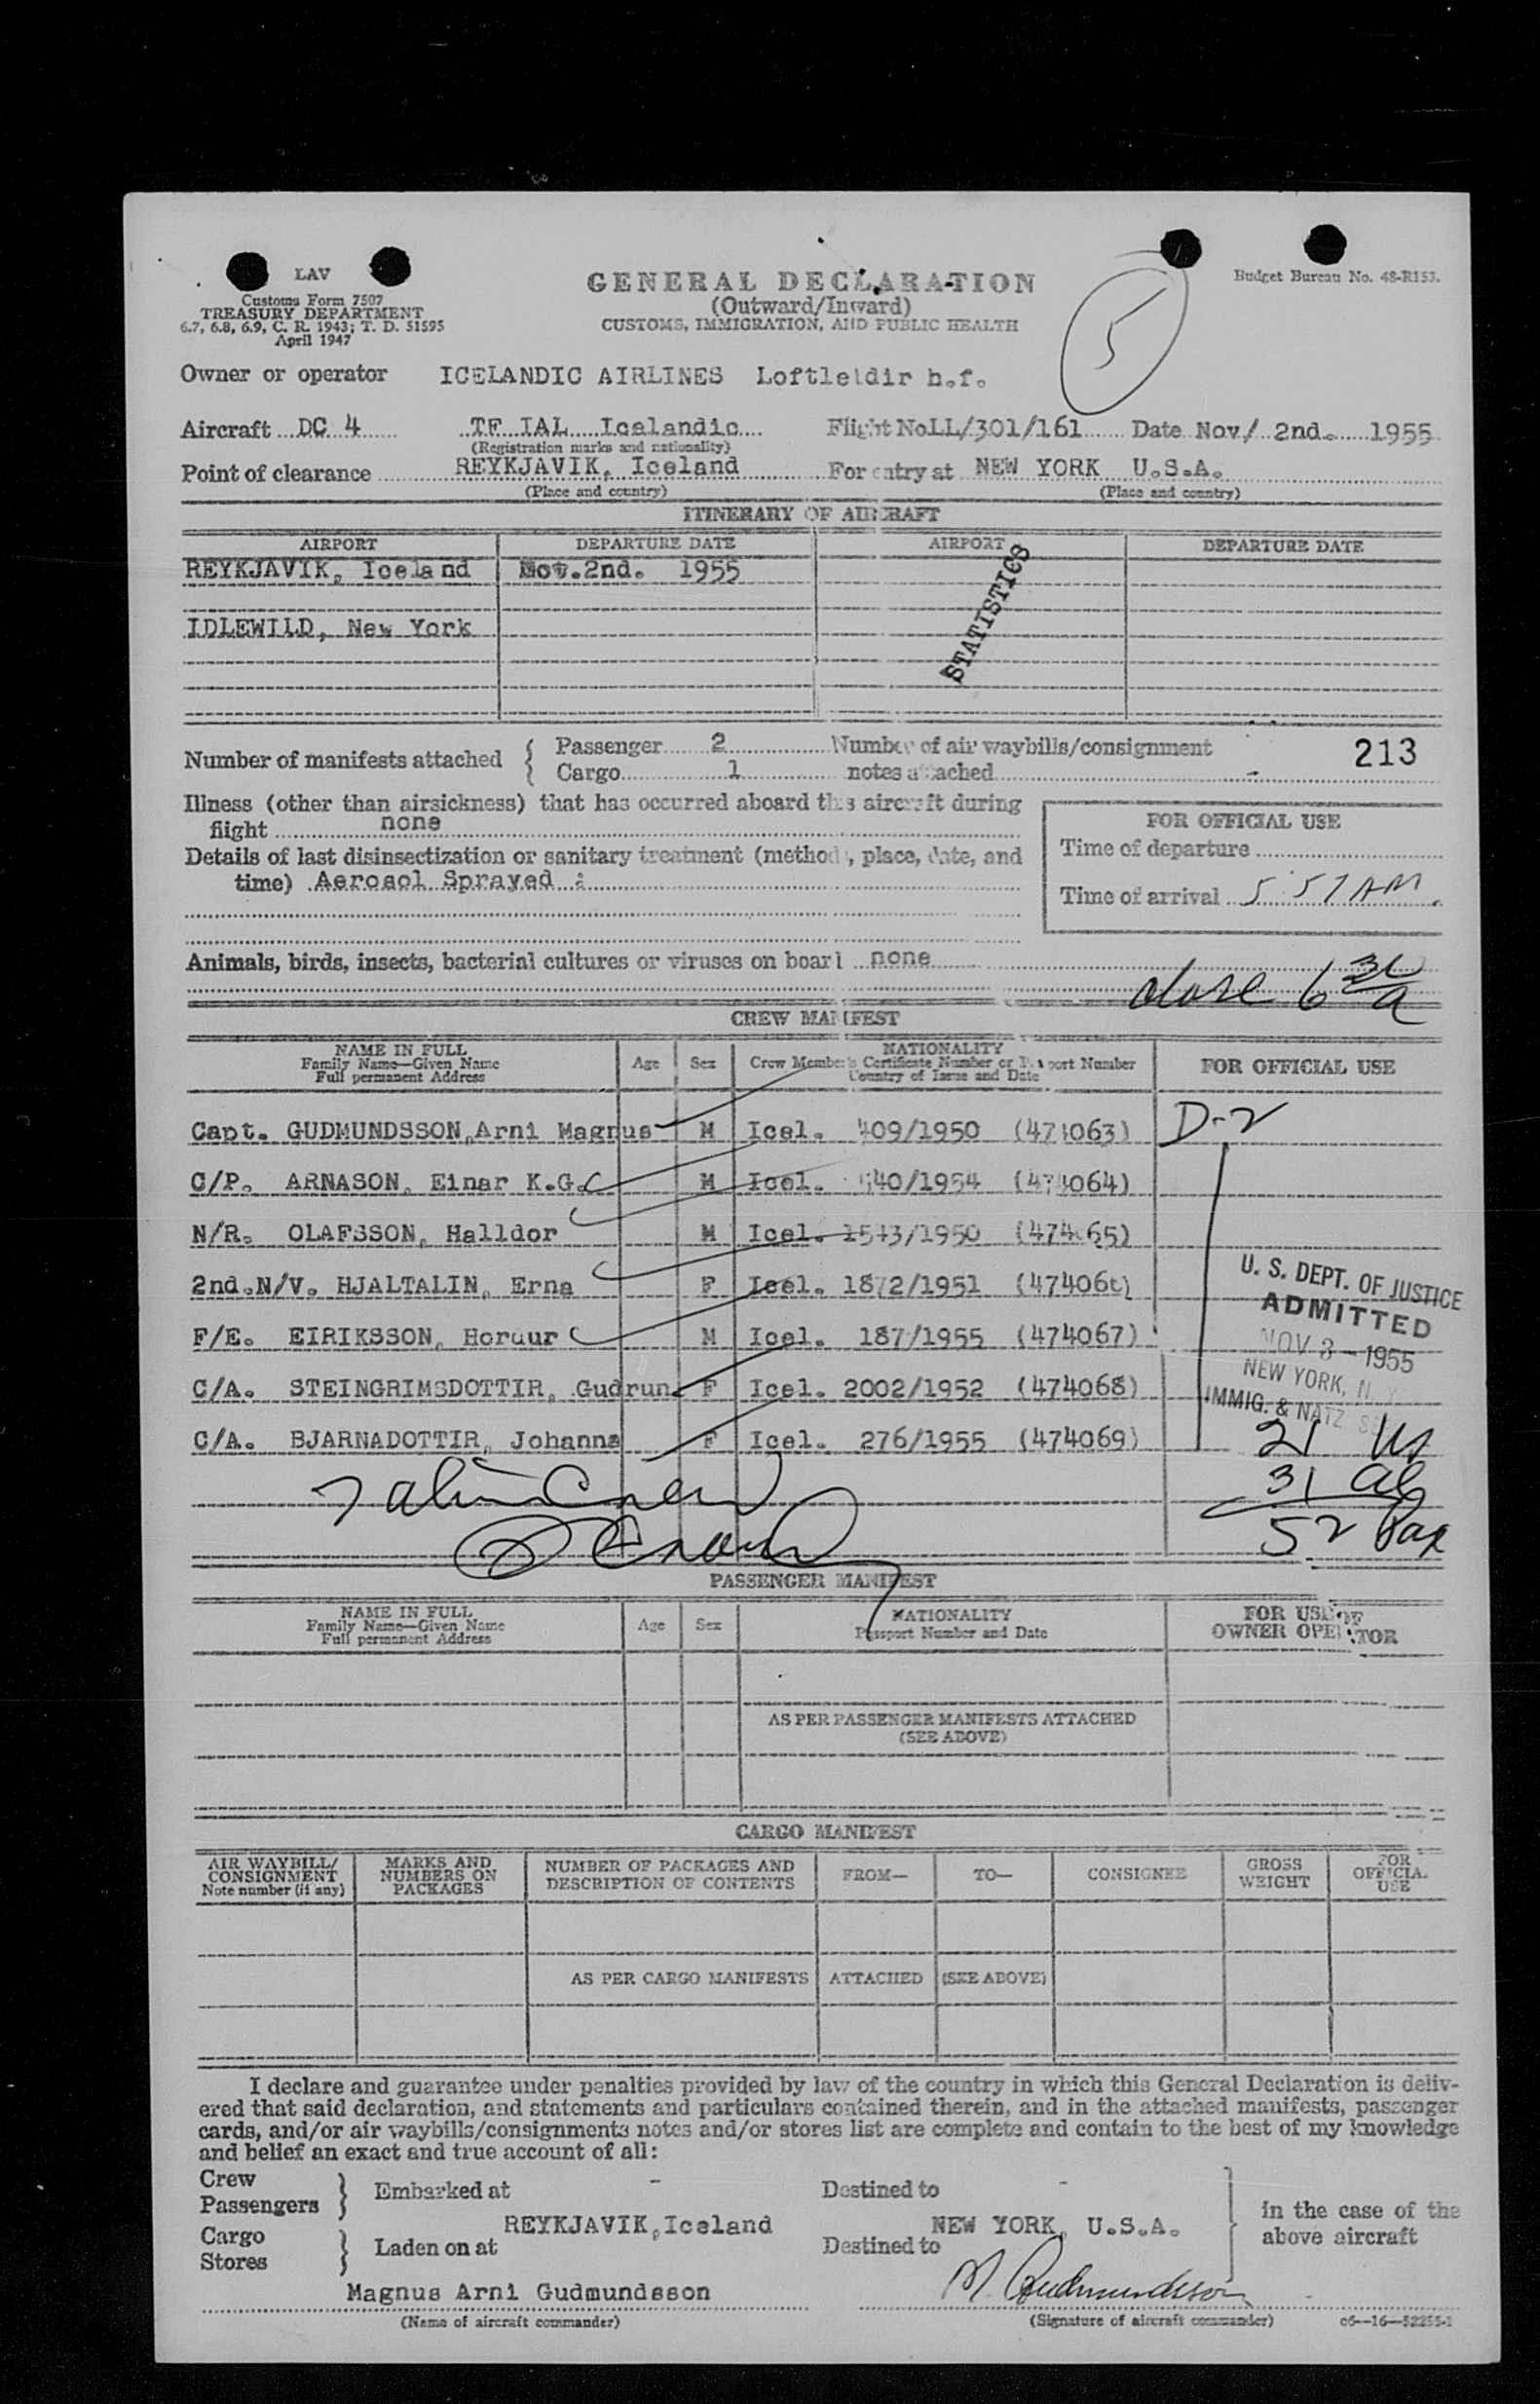 LAV
Customs Form 7507
TREASURY DEPARTMENT
6.7, 6.8, 6.9, C. R. 1943; T. D. 51595
April 1947
GENERAL DECLARATION
(Outward/Inward)
CUSTOMS, IMMIGRATION, AND PUBLIC HEALTH
5
Budget Bureau No. 48-R153.
Owner or operator ICELANDIC AIRLINES Loftleidir h.f.
Aircraft DC 4 TF IAL Icelandic Flight No. LL/301/161 Date Nov/ 2nd. 1955
(Registration marks and nationality)
Point of clearance REYKJAVIK, Iceland For entry at NEW YORK U.S.A.
(Place and country) (Place and country)
ITINERARY OF AIRCRAFT
AIRPORT DEPARTURE DATE AIRPORT DEPARTURE DATE
REYKJAVIK, Iceland Nov.2nd. 1955
IDLEWILD, New York
STATISTICS
Number of manifests attached { Passenger 2 Number of air waybills/consignment 213
Cargo 1 notes attached -
Illness (other than airsickness) that has occurred aboard this aircraft during
flight none
Details of last disinsectization or sanitary treatment (method, place, date, and
time) Aerosol Sprayed :
FOR OFFICIAL USE
Time of departure
Time of arrival 5:57 AM
Animals, birds, insects, bacterial cultures or viruses on board none
close 6 30/a
CREW MANIFEST
NAME IN FULL Age Sex NATIONALITY FOR OFFICIAL USE
Family Name—Given Name Crew Member's Certificate Number or Passport Number
Full permanent Address Country of Issue and Date
Capt. GUDMUNDSSON,Arni Magnus M Icel. 409/1950 (474063) D-2
C/P. ARNASON, Einar K.G. M Icel. 40/1954 (474064)
N/R. OLAFSSON, Halldor M Icel. 1543/1950 (474065)
2nd.N/V. HJALTALIN, Erna F Icel. 1872/1951 (474066)
F/E. EIRIKSSON, Hordur M Icel. 187/1955 (474067)
C/A. STEINGRIMSDOTTIR, Gudrun F Icel. 2002/1952 (474068)
C/A. BJARNADOTTIR, Johanna F Icel. 276/1955 (474069)
U. S. DEPT. OF JUSTICE
ADMITTED
NOV 3 - 1955
NEW YORK, N. Y.
IMMIG. & NATZ
21 us
31 al
52 Pax
PASSENGER MANIFEST
NAME IN FULL Age Sex NATIONALITY FOR USE OF
Family Name—Given Name Passport Number and Date OWNER OPERATOR
Full permanent Address
AS PER PASSENGER MANIFESTS ATTACHED
(SEE ABOVE)
CARGO MANIFEST
AIR WAYBILL/ CONSIGNMENT Note number (if any) MARKS AND NUMBERS ON PACKAGES NUMBER OF PACKAGES AND DESCRIPTION OF CONTENTS FROM— TO— CONSIGNEE GROSS WEIGHT FOR OFFICIAL USE
AS PER CARGO MANIFESTS ATTACHED (SEE ABOVE)
I declare and guarantee under penalties provided by law of the country in which this General Declaration is deliv-
ered that said declaration, and statements and particulars contained therein, and in the attached manifests, passenger
cards, and/or air waybills/consignments notes and/or stores list are complete and contain to the best of my knowledge
and belief an exact and true account of all:
Crew
Passengers } Embarked at - Destined to -
REYKJAVIK,Iceland NEW YORK, U.S.A.
Cargo
Stores } Laden on at Destined to
in the case of the
above aircraft
Magnus Arni Gudmundsson M. Gudmundsson
(Name of aircraft commander) (Signature of aircraft commander) c6—16—52255-1